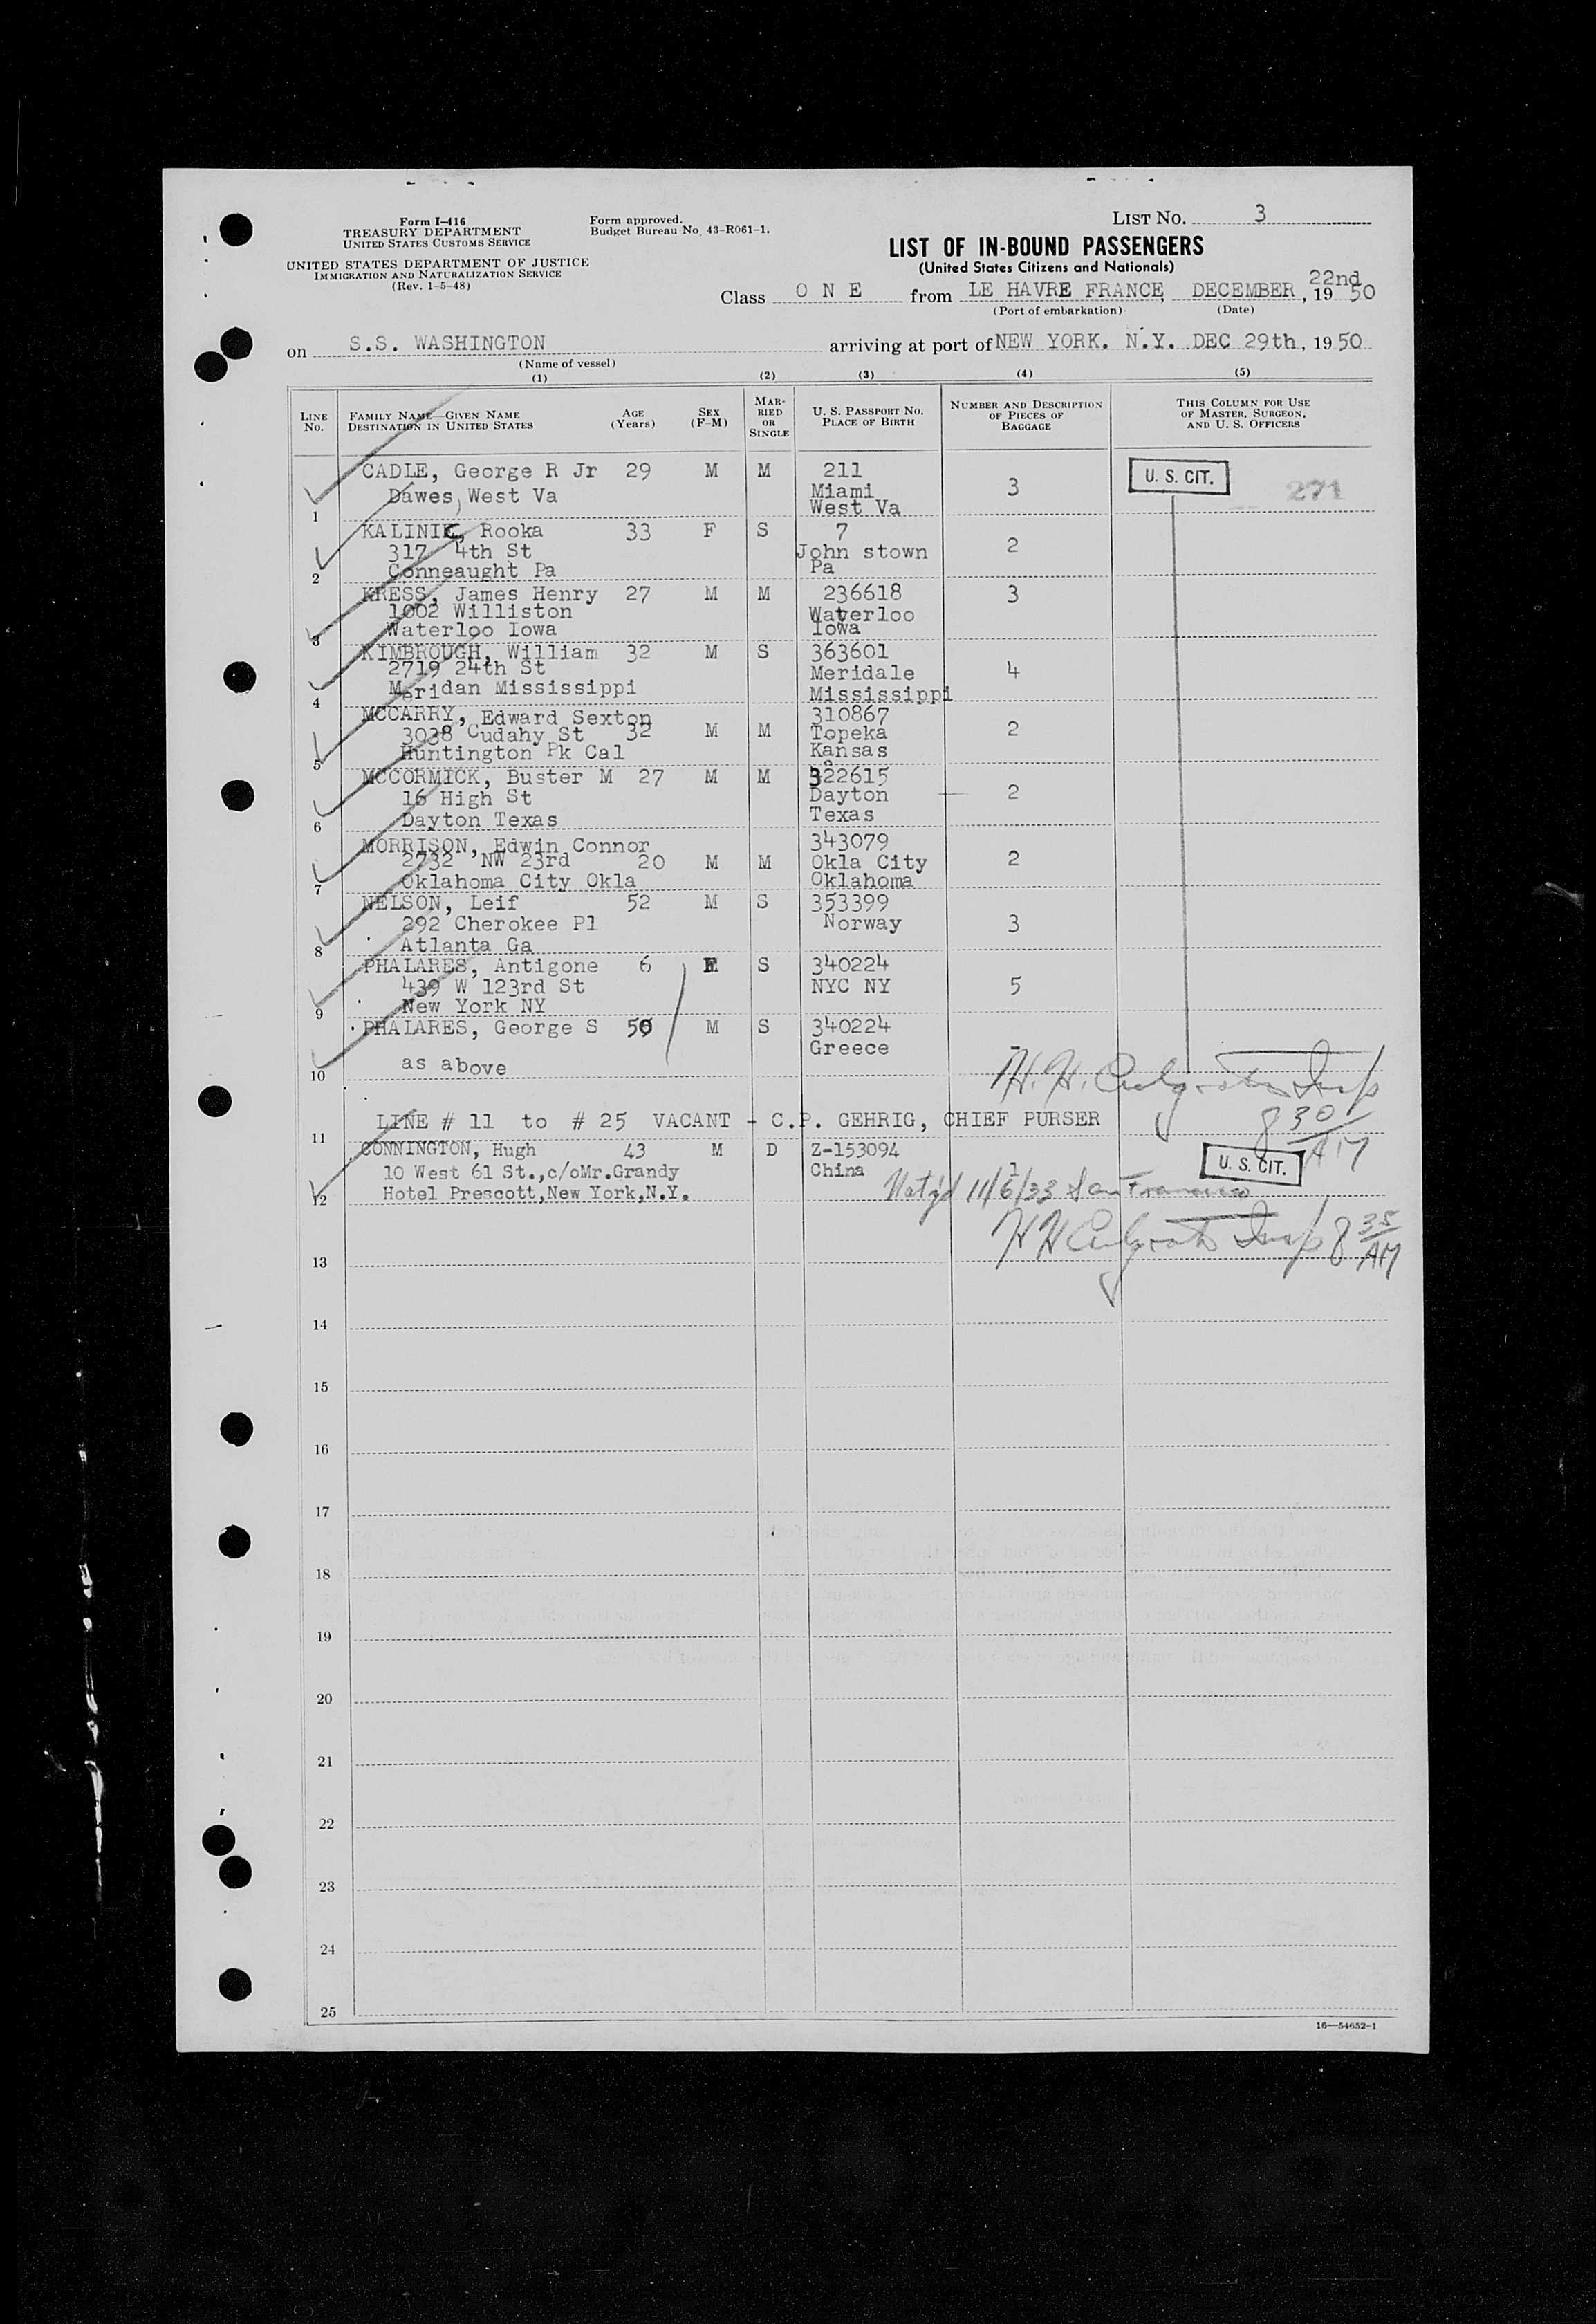 Form I-416
TREASURY DEPARTMENT
UNITED STATES CUSTOMS SERVICE
UNITED STATES DEPARTMENT OF JUSTICE
IMMIGRATION AND NATURALIZATION SERVICE
(Rev. 1-5-48)
Form approved.
Budget Bureau No. 43-R061-1.
LIST NO. 3
LIST OF IN-BOUND PASSENGERS
(United States Citizens and Nationals)
Class O N E from LE HAVRE FRANCE, DECEMBER 22nd, 19 50
(Port of embarkation) (Date)
on S.S. WASHINGTON arriving at port of NEW YORK. N.Y. DEC 29th, 19 50
(Name of vessel)
(1) (2) (3) (4) (5)
LINE NO.
FAMILY NAME—GIVEN NAME
DESTINATION IN UNITED STATES
AGE (Years)
SEX (F-M)
MARRIED OR SINGLE
U. S. PASSPORT NO.
PLACE OF BIRTH
NUMBER AND DESCRIPTION OF PIECES OF BAGGAGE
THIS COLUMN FOR USE OF MASTER, SURGEON, AND U. S. OFFICERS
CADLE, George R Jr 29 M M 211 3 U. S. CIT. 271
Dawes, West Va Miami
1 West Va
KALINIC, Rooka 33 F S 7 2
317 4th St John stown
2 Conneaught Pa Pa
KRESS, James Henry 27 M M 236618 3
1002 Williston Waterloo
3 Waterloo Iowa Iowa
KIMBROUGH, William 32 M S 363601 4
2719 24th St Meridale
4 Meridan Mississippi Mississippi
MCCARRY, Edward Sexton 310867
3038 Cudahy St 32 M M Topeka 2
5 Huntington Pk Cal Kansas
MCCORMICK, Buster M 27 M M 322615
16 High St Dayton 2
6 Dayton Texas Texas
MORRISON, Edwin Connor 343079
2732 NW 23rd 20 M M Okla City 2
7 Oklahoma City Okla Oklahoma
NELSON, Leif 52 M S 353399
292 Cherokee Pl Norway 3
8 Atlanta Ga
PHALARES, Antigone 6 F S 340224
439 W 123rd St NYC NY 5
9 New York NY
PHALARES, George S 50 M S 340224
Greece -
10 as above
H. H. Insp
8 30/AM
11 LINE # 11 to # 25 VACANT - C.P. GEHRIG, CHIEF PURSER
CONNINGTON, Hugh 43 M D Z-153094
10 West 61 St.,c/oMr.Grandy China 1 U. S. CIT.
12 Hotel Prescott,New York,N.Y. Nat'zd 11/6/33 San Francisco
H H Insp 8 35/AM
13
14
15
16
17
18
19
20
21
22
23
24
25
16—54652-1